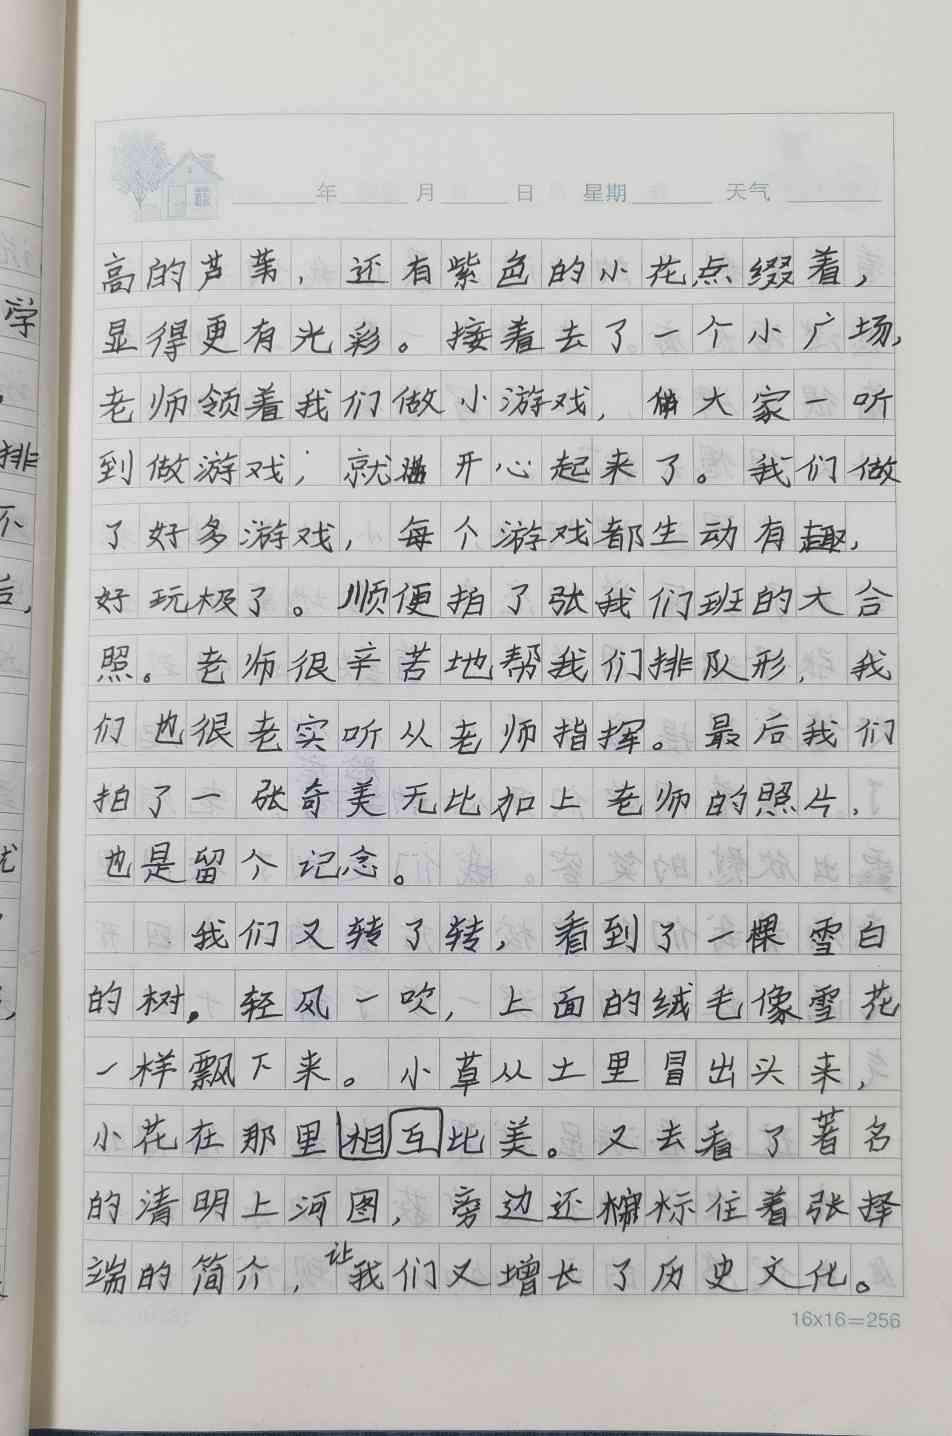 年 月 日 星期 天气
高的芦苇，还有紫色的小花点缀着，
显得更有光彩。接着去了一个小广场，
老师领着我们做小游戏，大家一听
到做游戏，就开心起来了。我们做
了好多游戏，每个游戏都生动有趣，
好玩极了。顺便拍了张我们班的大合
照。老师很辛苦地帮我们排队形，我
们也很老实听从老师指挥。最后我们
拍了一张奇美无比加上老师的照片，
也是留个记念。
我们又转了转，看到了一棵雪白
的树。轻风一吹，上面的绒毛像雪花
一样飘下来。小草从土里冒出头来，
小花在那里相互比美。又去看了著名
的清明上河图，旁边还标住着张择
端的简介，让我们又增长了历史文化。
16x16=256
学
排
不
后，